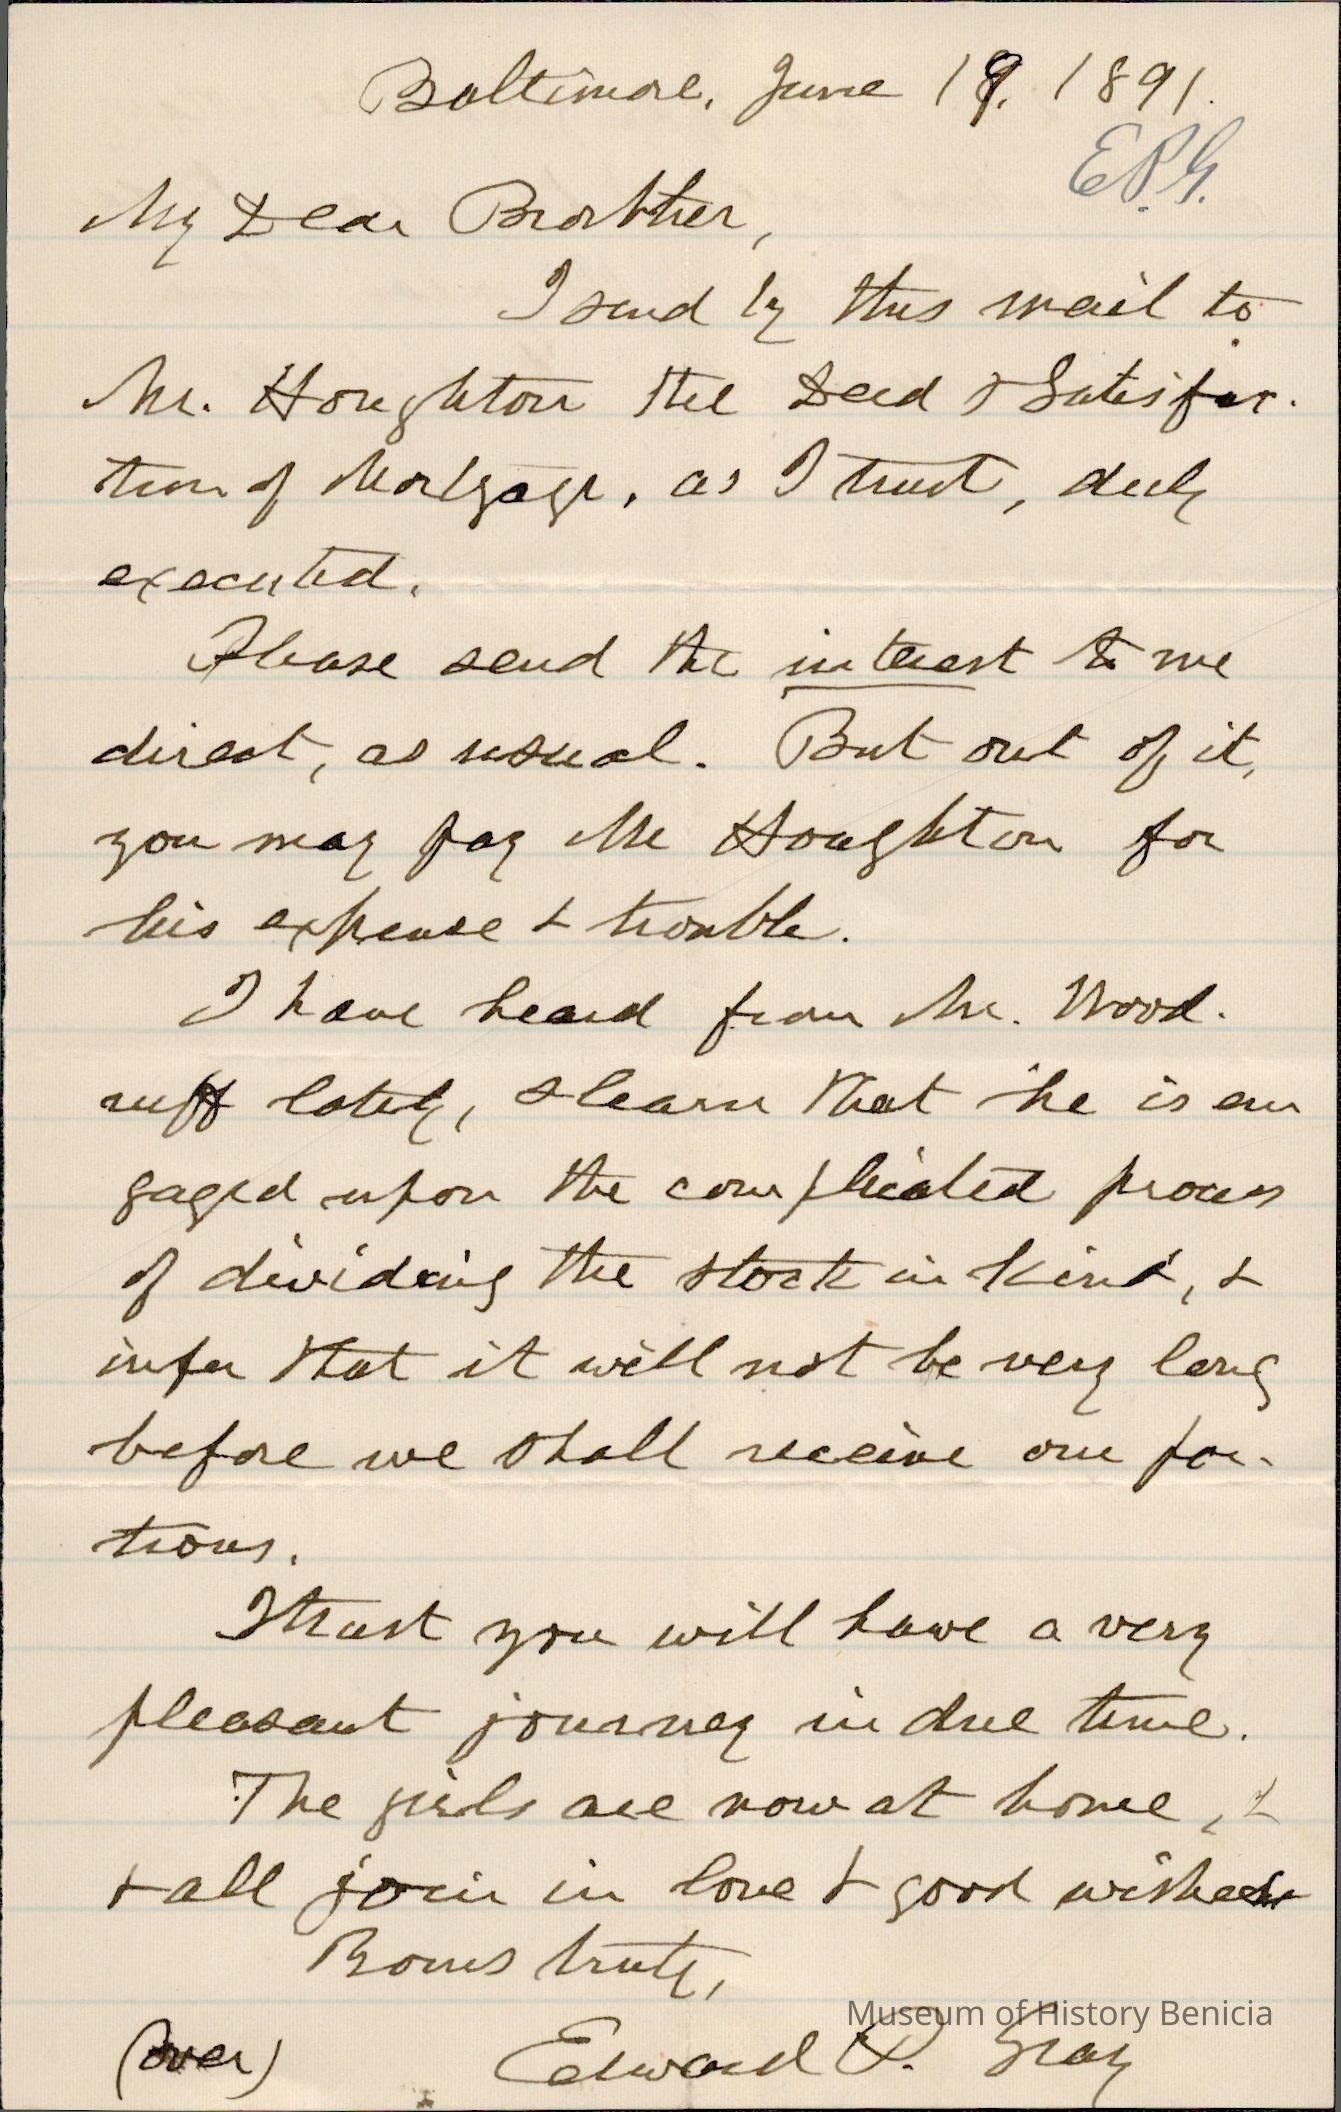 Baltimore, June 19. 1891.
E.P.G.
My Dear Brother,
I send by this mail to
Mr. Houghton the Deed & Satisfac-
tion of Mortgage, as I trust, duly
executed.
Please send the interest to me
direct, as usual. But out of it,
you may pay Mr Houghton for
his expense & trouble.
I have heard from Mr. Wood-
ruff lately, & learn that he is en
gaged upon the complicated process
of dividing the stock in kind, &
infer that it will not be very long
before we shall receive our por-
tions.
I trust you will have a very
pleasant journey in due time.
The girls are now at home, &
& all join in love & good wishes
Yours truly,
Museum of History Benicia
(over) Edward P. Gray